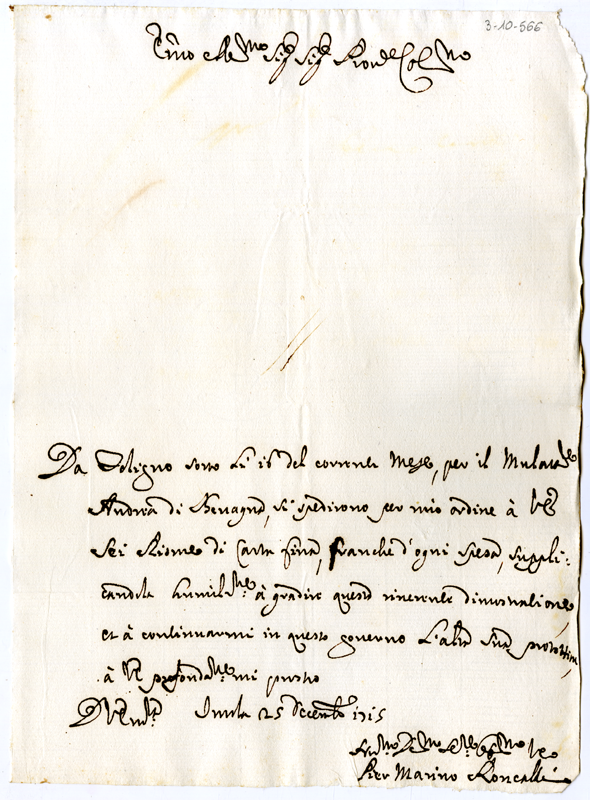 3-10-566
Em̃o e Rev:mo Sig: Sig: Pron: Col:mo
Da Foligno sotto li 16 del corrente Mese, per il Mulattre
Andrea di Bevagna, si spedirono per mio ordine à VE
Sei Risme di Carta fina, franche d'ogni spesa, suppli:
candola humilme: à gradire questa riverente dimostratione,
et à continuarmi in questo governo l'alta sua protettione,
à VE profondame: mi prostro
D VE 25 Decembre 1715
Hum:mo Dev:mo et Obb:mo Ser
Pier Marino Roncalli